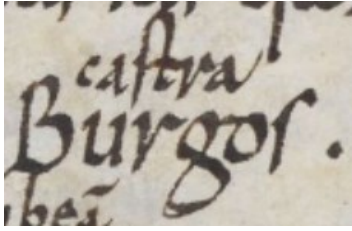 castra
Burgos.